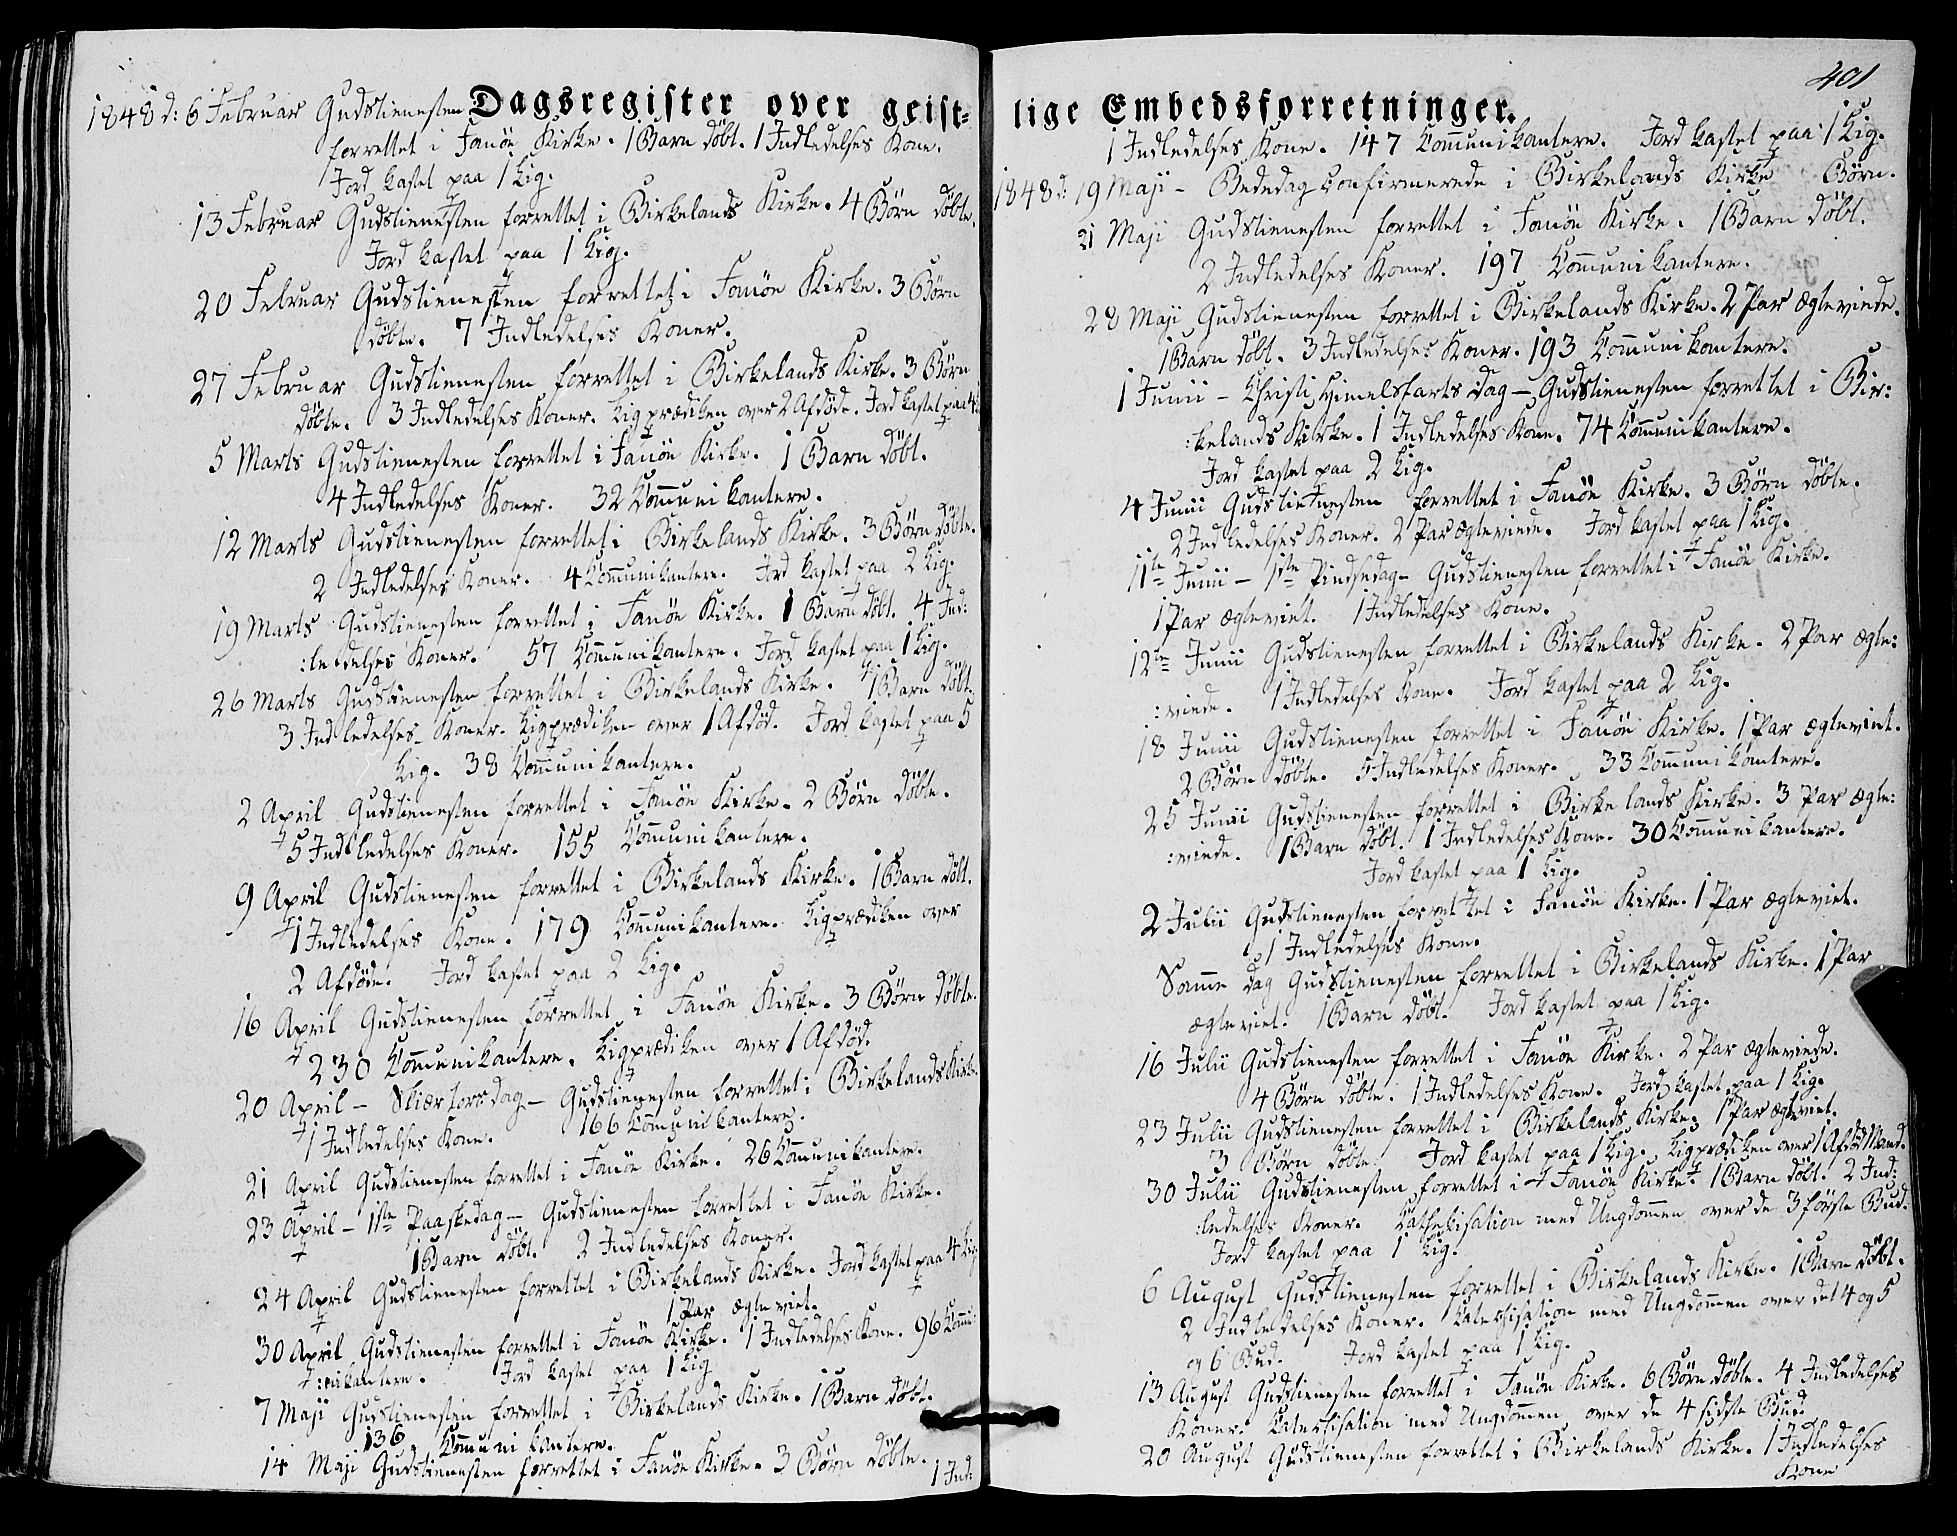 Dagsregister over geist-
1848 d: 6 Februar Gudstienesten
forrettet i Fanöe Kirke. 1 Barn döbt. 1 Indledelses Kone.
Jord kastet paa 1 Lig.
13 Februar Gudstienesten forrettet i Birkelands Kirke. 4 Börn döbte.
Jord kastet paa 1 Lig.
20 Februar Gudstienesten forrettet i Fanöe Kirke. 3 Börn
döbte. 7 Indledelses Koner.
27 Februar Gudstienesten forrettet i Birkelands Kirke. 3 Börn
döbte. 3 Indledelses Koner. Ligprædiken over 2 Afdöde. Jord kastet paa 4
5 Marts Gudstienesten forrettet i Fanöe Kirke. 1 Barn döbt.
4 Indledelses Koner. 32 Communikantere.
12 Marts Gudstienesten forrettet i Birkelands Kirke. 3 Börn döbte.
2 Indledelses Koner. 4 Communikantere. Jord kastet paa 2 Lig.
19 Marts Gudstienesten forrettet i Fanöe Kirke. 1 Barn döbt. 4 Ind:
:ledelses Koner. 57 Communikantere. Jord kastet paa 1 Lig.
26 Marts Gudstienesten forrettet i Birkelands Kirke. 1 Barn döbt.
3 Indledelses Koner. Ligprædiken over 1 Afdöd. Jord kastet paa 5
Lig. 38 Communikantere.
2 April Gudstienesten forrettet i Fanöe Kirke. 2 Börn döbte.
5 Indledelses Koner. 155 Communikantere.
9 April Gudstienesten forrettet i Birkelands Kirke. 1 Barn döbt.
1 Indledelses Kone. 179 Communikantere. Ligprædiken over
2 Afdöde. Jord kastet paa 2 Lig.
16 April Gudstienesten forrettet i Fanöe Kirke. 3 Börn döbte.
230 Communikantere. Ligprædiken over 1 Afdöd.
20 April - Skiærtorsdag - Gudstienesten forrettet i Birkelands Kirke.
1 Indledelses Kone. 166 Communikantere.
21 April Gudstienesten forrettet i Fanöe Kirke. 26 Communikantere.
23 April - 1ste Paaskedag - Gudstienesten forrettet i Fanöe Kirke.
1 Barn döbt. 2 Indledelses Koner.
24 April Gudstienesten forrettet i Birkelands Kirke. Jord kastet paa 4 Lig.
1 Par ægteviet.
30 April Gudstienesten forrettet i Fanöe Kirke. 1 Indledelses Kone. 96 Commu:
:nikantere. Jord kastet paa 1 Lig
7 Maji Gudstienesten forrettet i Birkelands Kirke. 1 Barn döbt.
136 Communikantere.
14 Maji Gudstienesten forrettet i Fanöe Kirke. 3 Börn döbte.
1 Ind:
401
lige Embedsforretninger.
1 Indledelses Kone. 147 Communikantere. Jord kastet paa 1 Lig.
1848 d: 19 Maji - Bededag Confirmerede i Birkelands Kirke Börn.
21 Maji Gudstienesten forrettet i Fanöe Kirke. 1 Barn döbt.
2 Indledelses Koner. 197 Communikantere.
28 Maji Gudstienesten forrettet i Birkelands Kirke. 2 Par ægteviede.
1 Barn döbt. 3 Indledelses Koner. 193 Communikantere.
1 Junii - Christi Himelfarts Dag - Gudstienesten forrettet i Bir:
:kelands Kirke. 1 Indledelses Kone. 74 Communikantere.
Jord kastet paa 2 Lig.
4 Junii Gudstienesten forrettet i Fanöe Kirke. 3 Börn döbte.
2 Indledelses Koner. 2 Par ægteviede. Jord kastet paa 1 Lig.
11te Junii - 1ste Pindsedag - Gudstienesten forrettet i Fanöe Kirke.
1 Par ægteviet. 1 Indledelses Kone.
12te Junii Gudstienesten forrettet i Birkelands Kirke. 2 Par ægte:
:viede. 1 Indledelses Kone. Jord kastet paa 2 Lig.
18 Junii Gudstienesten forrettet i Fanöe Kirke. 1 Par ægteviet.
2 Börn döbte. 5 Indledelses Koner. 33 Communikantere.
25 Junii Gudstienesten forrettet i Birkelands Kirke. 3 Par ægte:
:viede. 1 Barn döbt. 1 Indledelses Kone. 30 Communikantere.
Jord kastet paa 1 Lig.
2 Julii Gudstienesten forrettet i Fanöe Kirke. 1 Par ægteviet.
1 Indledelses Kone.
Samme Dag Gudstienesten forrettet i Birkelands Kirke. 1 Par
ægteviet. 1 Barn döbt. Jord kastet paa 1 Lig.
16 Julii Gudstienesten forrettet i Fanöe Kirke. 2 Par ægteviede.
4 Börn döbte. 1 Indledelses Kone. Jord kastet paa 1 Lig.
23 Julii Gudstienesten forrettet i Birkelands Kirke. 1 Par ægteviet.
3 Börn döbte. Jord kastet paa 1 Lig. Ligprædiken over 1 Afdöd Mand.
30 Julii Gudstienesten forrettet i Fanöe Kirke. 1 Barn döbt. 2 Ind:
:ledelses Koner. Kathekisation med Ungdommen over de 3 förste Bud.
Jord kastet paa 1 Lig.
6 August Gudstienesten forrettet i Birkelands Kirke. 1 Barn döbt.
2 Indledelses Koner. Katechisation med Ungdommen over det 4 og 5
og 6 Bud. Jord kastet paa 1 Lig.
13 August Gudstienesten forrettet i Fanöe Kirke. 6 Börn döbte. 4 Indledelses
Koner. Katechisation med Ungdommen over de 4 sidste Bud.
20 August Gudstienesten forrettet i Birkelands Kirke. 1 Indledelses
Kone